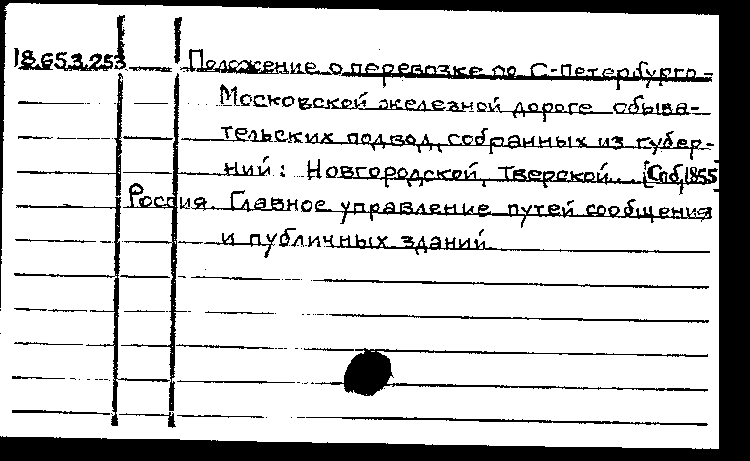 18.653.253 Положение о перевозке по С-Петербурго-
Московской железной дороге обыва-
тельских подвод, собранных из губер-
ний: Новгородской, Тверской... [Спб, 1855]
Россия. Главное управление путей сообщения
и публичных зданий.